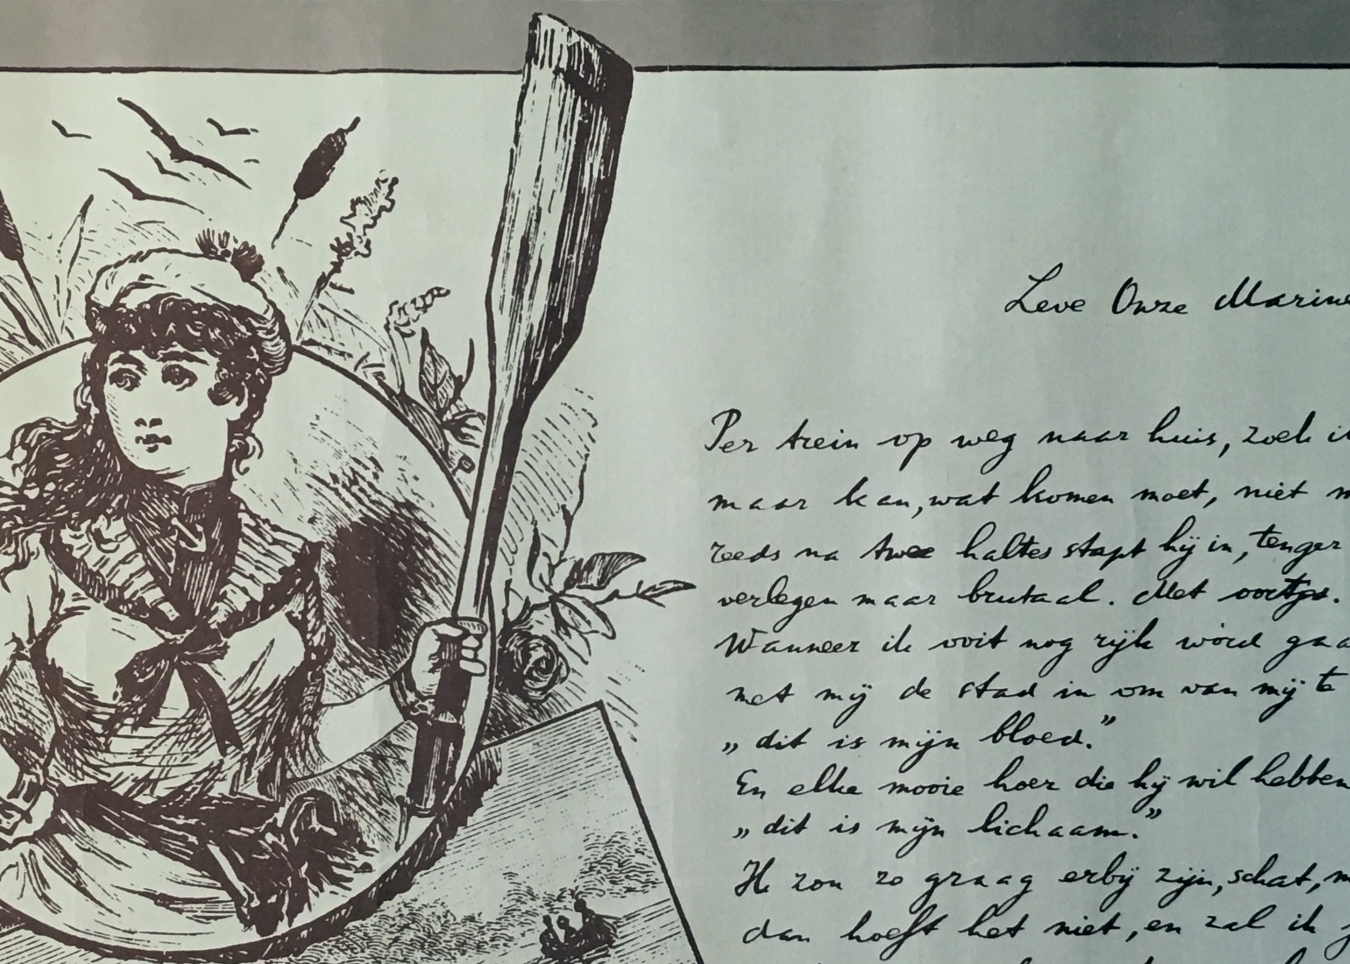 Leve Onze Marine
Per trein op weg naar huis, zoek ik
maar kan, wat komen moet, niet
reeds na twee haltes stapt hij in, tenger
verlegen maar brutaal. Met oortjes.
Wanneer ik ooit nog rijk word
met mij de stad in om van mij te
„dit is mijn bloed.”
En elke mooie hoer die hij wil hebben
„dit is mijn lichaam.”
Ik zou zo graag erbij zijn, schat,
dan hoeft het niet, en zal ik